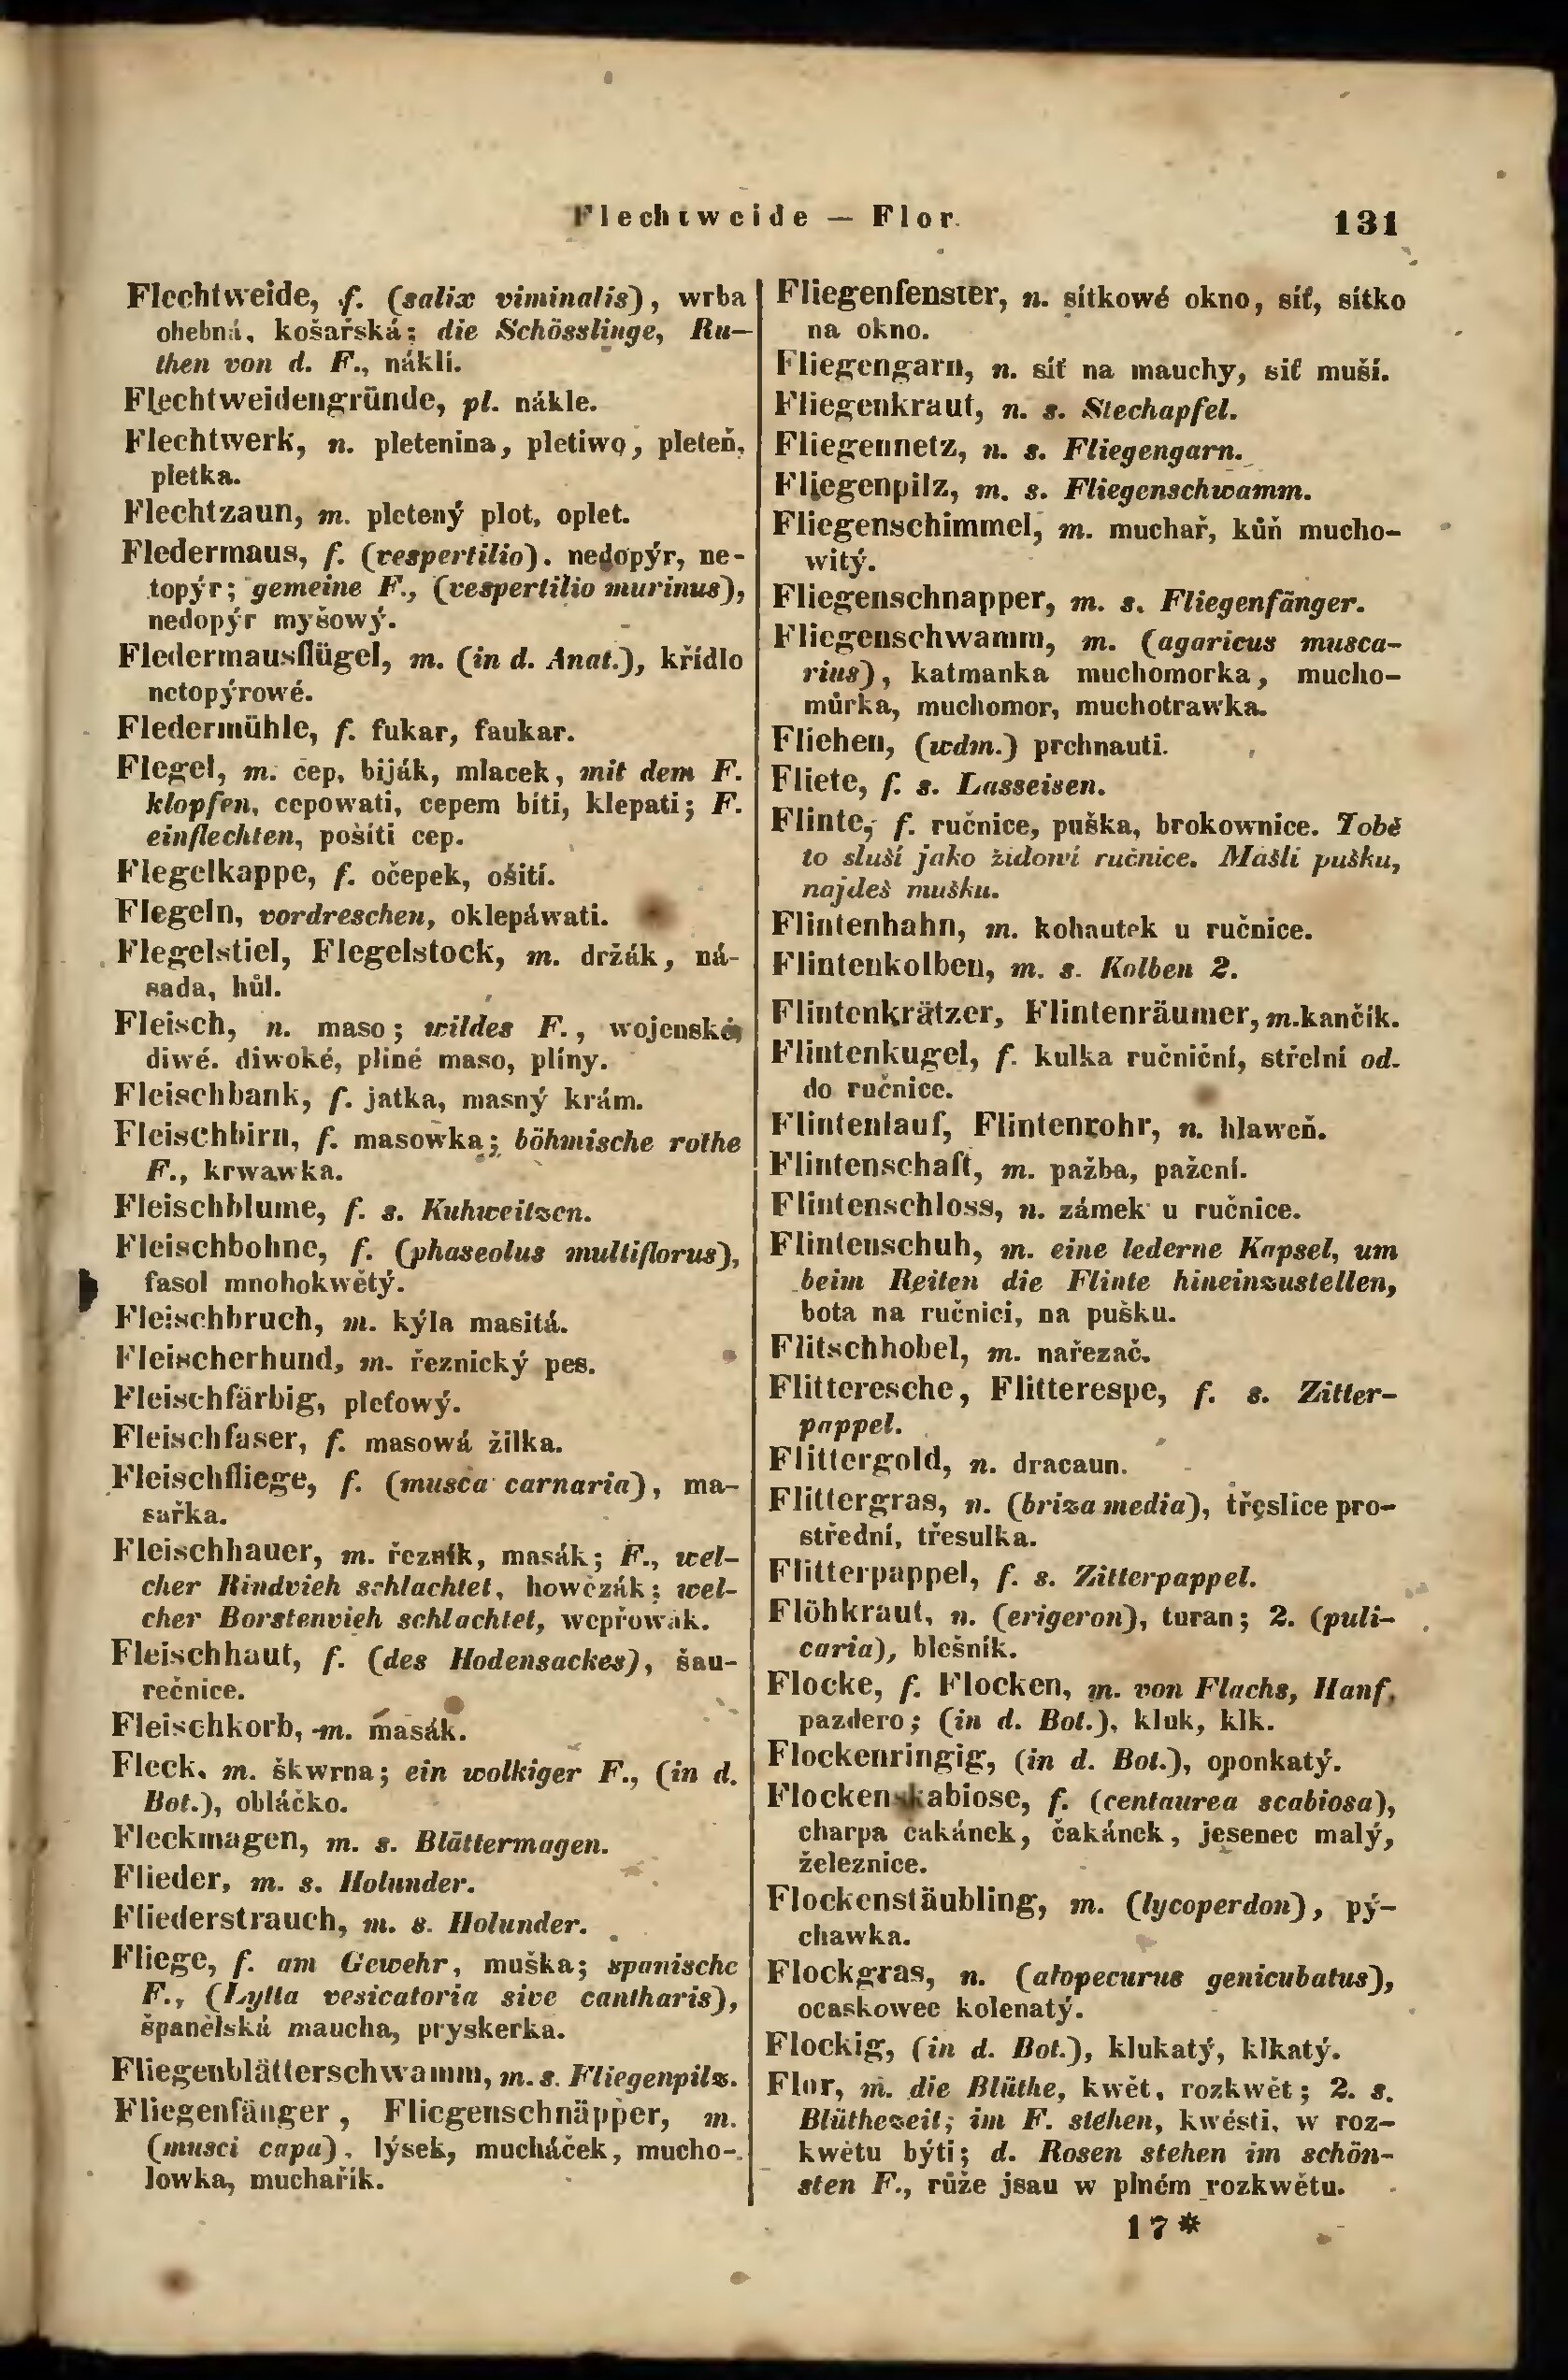 Flechtweide — Flor.
131
Flechtweide, f. (salix viminalis), wrba
ohebná, košařská; die Schösslinge, Ru-
then von d. F., náklí.
Flechtweidengründe, pl. nákle.
Flechtwerk, n. pletenina, pletiwo, pleteň,
pletka.
Flechtzaun, m. pletený plot, oplet.
Fledermaus, f. (vespertilio). nedopýr, ne-
topýr; gemeine F., (vespertilio murinus),
nedopýr myšowý.
Fledermausflügel, m. (in d. Anat.), křídlo
netopýrowé.
Fledermühle, f. fukar, faukar.
Flegel, m. cep, biják, mlacek, mit dem F.
klopfen, cepowati, cepem bíti, klepati; F.
einflechten, pošíti cep.
Flegelkappe, f. očepek, ošití.
Flegeln, vordreschen, oklepáwati.
Flegelstiel, Flegelstock, m. držák, ná-
sada, hůl.
Fleisch, n. maso; wildes F., wojenské,
diwé. diwoké, pliné maso, plíny.
Fleischbank, f. jatka, masný krám.
Fleischbirn, f. masowka; böhmische rothe
F., krwawka.
Fleischblume, f. s. Kuhweitzen.
Fleischbohne, f. (phaseolus multiflorus),
fasol mnohokwětý.
Fleischbruch, m. kýla masitá.
Fleischerhund, m. řeznický pes.
Fleischfärbig, pleťowý.
Fleischfaser, f. masowá žilka.
Fleischfliege, f. (musca carnaria), ma-
sařka.
Fleischhauer, m. řezník, masák; F., wel-
cher Rindvieh schlachtet, howězák; wel-
cher Borstenvieh schlachtet, wepřowák.
Fleischhaut, f. (des Hodensackes), šau-
rečnice.
Fleischkorb, m. masák.
Fleck, m. škwrna; ein wolkiger F., (in d.
Bot.), obláčko.
Fleckmagen, m. s. Blättermagen.
Flieder, m. s. Holunder.
Fliederstrauch, m. s. Holunder.
Fliege, f. am Gewehr, muška; spanische
F., (Lytta vesicatoria sive cantharis),
španělská maucha, pryskerka.
Fliegenblätterschwamm, m. s. Fliegenpilz.
Fliegenfänger, Fliegenschnäpper, m.
(musci capa), lýsek, mucháček, mucho-
lowka, muchařík.
Fliegenfenster, n. sítkowé okno, síť, sítko
na okno.
Fliegengarn, n. síť na mauchy, síť muší.
Fliegenkraut, n. s. Stechapfel.
Fliegennetz, n. s. Fliegengarn.
Fliegenpilz, m. s. Fliegenschwamm.
Fliegenschimmel, m. muchař, kůň mucho-
witý.
Fliegenschnapper, m. s. Fliegenfänger.
Fliegenschwamm, m. (agaricus musca-
rius), katmanka muchomorka, mucho-
můrka, muchomor, muchotrawka.
Fliehen, (wdm.) prchnauti.
Fliete, f. s. Lasseisen.
Flinte, f. ručnice, puška, brokownice. Tobě
to sluší jako židowi ručnice. Mášli pušku,
najdeš mušku.
Flintenhahn, m. kohautek u ručnice.
Flintenkolben, m. s. Kolben 2.
Flintenkrätzer, Flintenräumer, m. kančík.
Flintenkugel, f. kulka ručniční, střelní od.
do ručnice.
Flintenlauf, Flintenrohr, n. hlaweň.
Flintenschaft, m. pažba, pažení.
Flintenschloss, n. zámek u ručnice.
Flintenschuh, m. eine lederne Kapsel, um
beim Reiten die Flinte hineinzustellen,
bota na ručnici, na pušku.
Flitschhobel, m. nařezač.
Flitteresche, Flitterespe, f. s. Zitter-
pappel.
Flittergold, n. dracaun.
Flittergras, n. (briza media), třeslice pro-
střední, třesulka.
Flitterpappel, f. s. Zitterpappel.
Flöhkraut, n. (erigeron), turan; 2. (puli-
caria), blešník.
Flocke, f. Flocken, m. von Flachs, Hanf,
pazdero; (in d. Bot.), kluk, klk.
Flockenringig, (in d. Bot.), oponkatý.
Flockenskabiose, f. (centaurea scabiosa),
charpa čakánek, čakánek, jesenec malý,
železnice.
Flockenstäubling, m. (lycoperdon), pý-
chawka.
Flockgras, n. (alopecurus genicubatus),
ocaskowec kolenatý.
Flockig, (in d. Bot.), klukatý, klkatý.
Flor, m. die Blüthe, kwět, rozkwět; 2. s.
Blüthezeit; im F. stehen, kwésti, w roz-
kwětu býti; d. Rosen stehen im schön-
sten F., růže jsau w plném rozkwětu.
17*